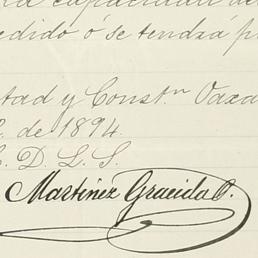 cedido ó se tendrá p
tad y Constn Oaxa
de 1894.
D. L. S.
Martinez Gracida